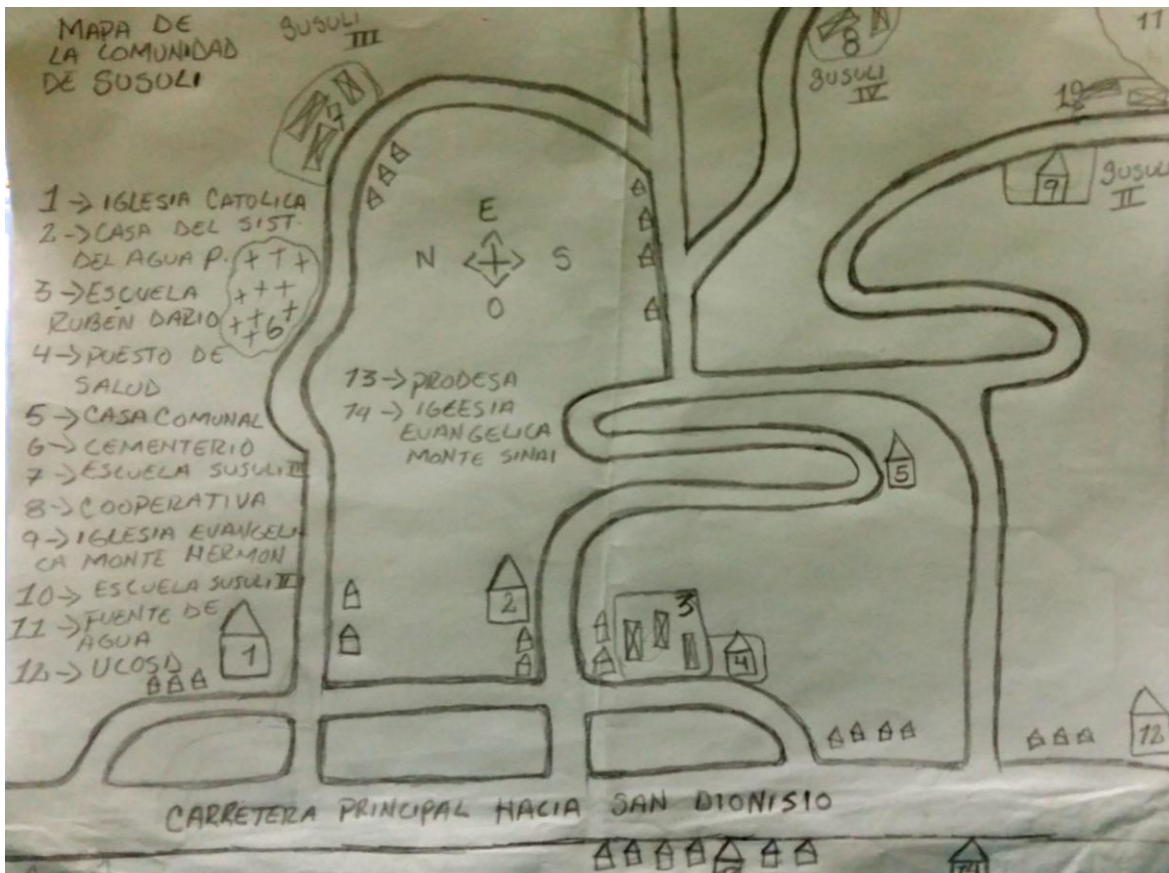 MAPA DE
LA COMUNIDAD
DE SUSULI
SUSULI
III
7
8
SUSULI
IV
11
9
SUSULI
II
1 -> IGLESIA CATOLICA
2 -> CASA DEL SIST.
DEL AGUA P.
3 -> ESCUELA
RUBEN DARIO
4 -> PUESTO DE
SALUD
5 -> CASA COMUNAL
6 -> CEMENTERIO
7 -> ESCUELA SUSULI III
8 -> COOPERATIVA
9 -> IGLESIA EVANGELI
CA MONTE HERMON
10 -> ESCUELA SUSULI
11 -> FUENTE DE
AGUA
12 -> UCOSD
6
E
N S
O
13 -> PRODESA
14 -> IGLESIA
EVANGELICA
MONTE SINAI
5
2
3
1
4
12
CARRETERA PRINCIPAL HACIA SAN DIONISIO
14